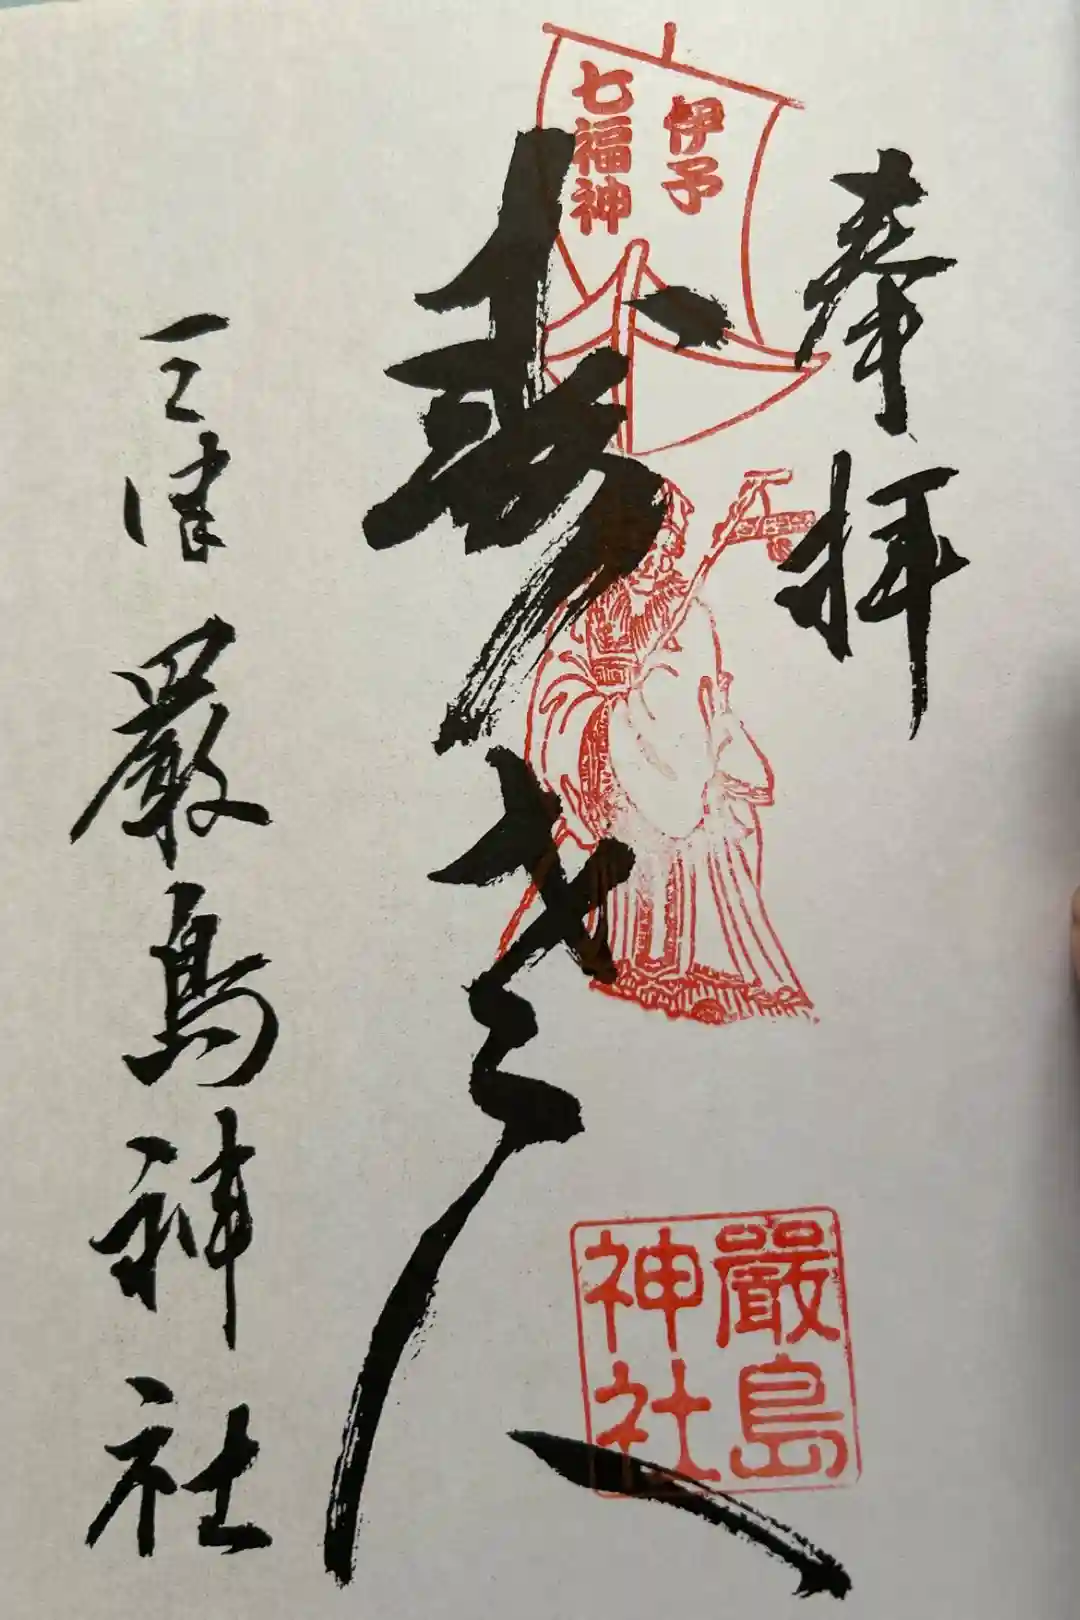 奉拝
伊予
七福神
寿老人
三津厳島神社
嚴島
神社